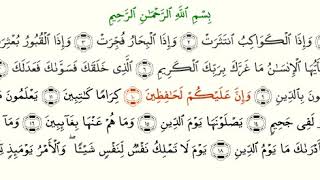 بِسْمِ ٱللَّهِ ٱلرَّحْمَٰنِ ٱلرَّحِيمِ
وَإِذَا ٱلْكَوَاكِبُ ٱنتَثَرَتْ ٢ وَإِذَا ٱلْبِحَارُ فُجِّرَتْ ٣ وَإِذَا ٱلْقُبُورُ بُعْثِرَ
يَٰٓأَيُّهَا ٱلْإِنسَٰنُ مَا غَرَّكَ بِرَبِّكَ ٱلْكَرِيمِ ٦ ٱلَّذِى خَلَقَكَ فَسَوَّىٰكَ فَعَدَلَكَ
ونَ بِٱلدِّينِ ٩ وَإِنَّ عَلَيْكُمْ لَحَٰفِظِينَ ١٠ كِرَامًا كَٰتِبِينَ ١١ يَعْلَمُونَ مَا
لَفِى جَحِيمٍ ١٤ يَصْلَوْنَهَا يَوْمَ ٱلدِّينِ ١٥ وَمَا هُمْ عَنْهَا بِغَآئِبِينَ ١٦ وَمَآ
أَدْرَىٰكَ مَا يَوْمُ ٱلدِّينِ ١٨ يَوْمَ لَا تَمْلِكُ نَفْسٌ لِّنَفْسٍ شَيْـًٔا ۖ وَٱلْأَمْرُ يَوْمَئِذٍ